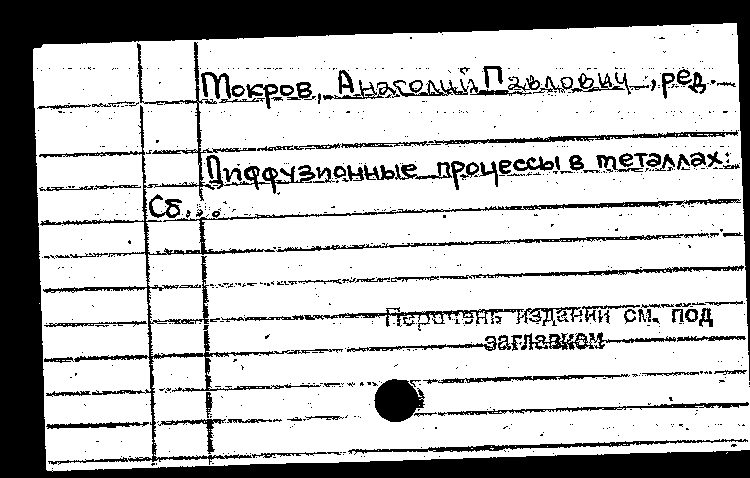 Мокров, Анатолий Павлович, ред.
Диффузионные процессы в металлах:
Сб...
Перечень изданий см. под
заглавием